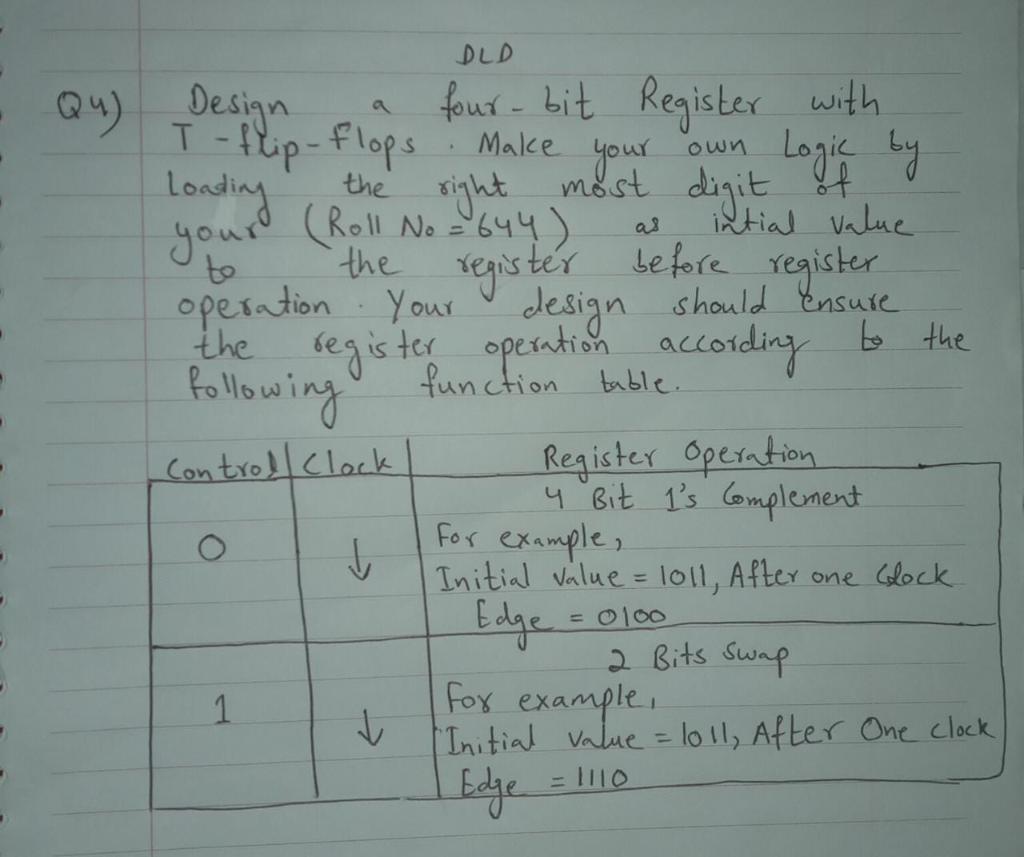 DLD
Q4) Design a four-bit Register with
T-flip-flops. Make your own Logic by
Loading the right most digit of
your (Roll No = 644) as intial value
to the register before register
operation. Your design should ensure
the register operation according to the
following function table.
Control Clock Register Operation
4 Bit 1's Complement
0 ↓ For example,
Initial value = 1011, After one Clock
Edge = 0100
2 Bits Swap
1 ↓ For example,
Initial value = 1011, After One clock
Edge = 1110